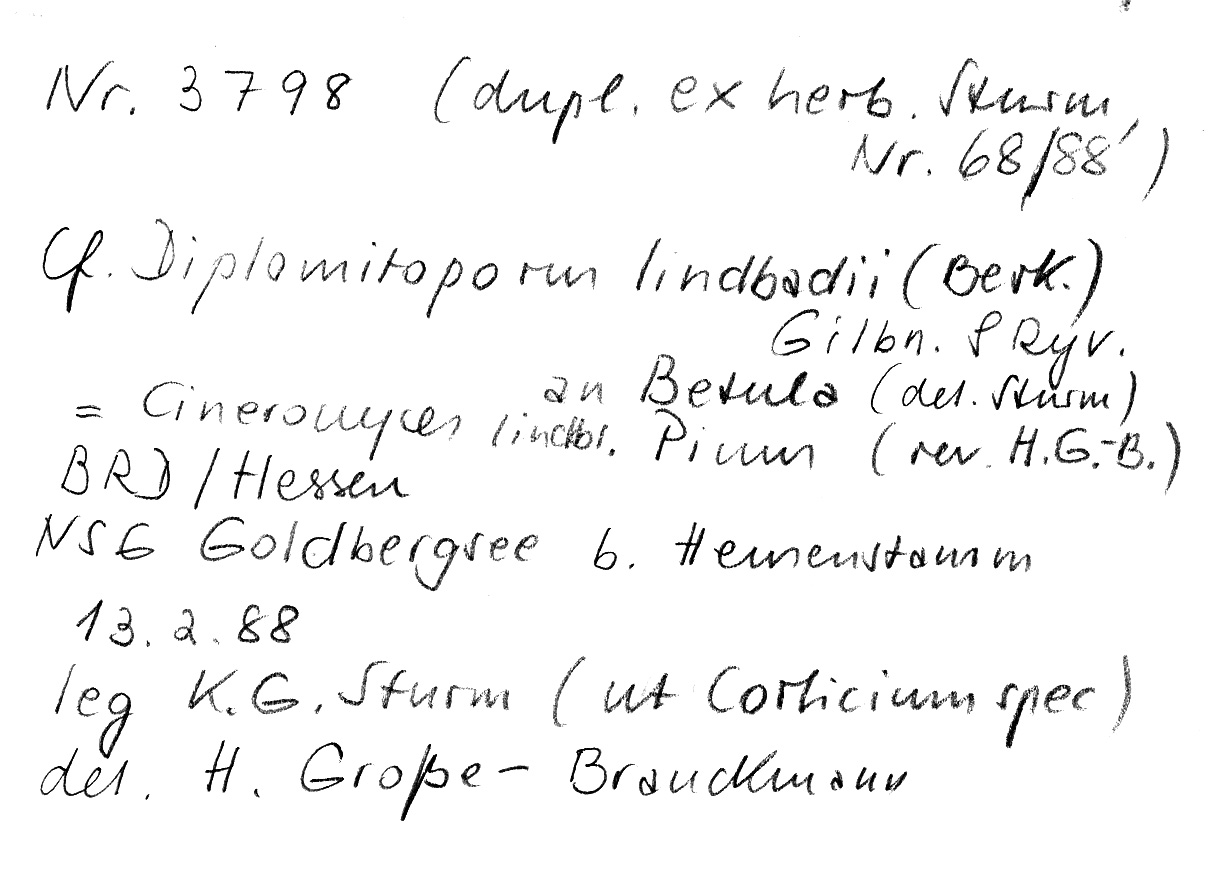 Nr. 3798 (dupl. ex herb. Sturm,
Nr. 68/88)
Cf. Diplomitoporus lindbadii (Berk.)
Gilbn. & Ryv.
an Betula (det. Sturm)
= Cineromyces lindbl. Pinus (rev. H.G.-B.)
BRD/Hessen
NSG Goldbergsee b.
13.2.88
leg K.G. Sturm (ut Corticium spec)
det. H. Große-Brauckmann